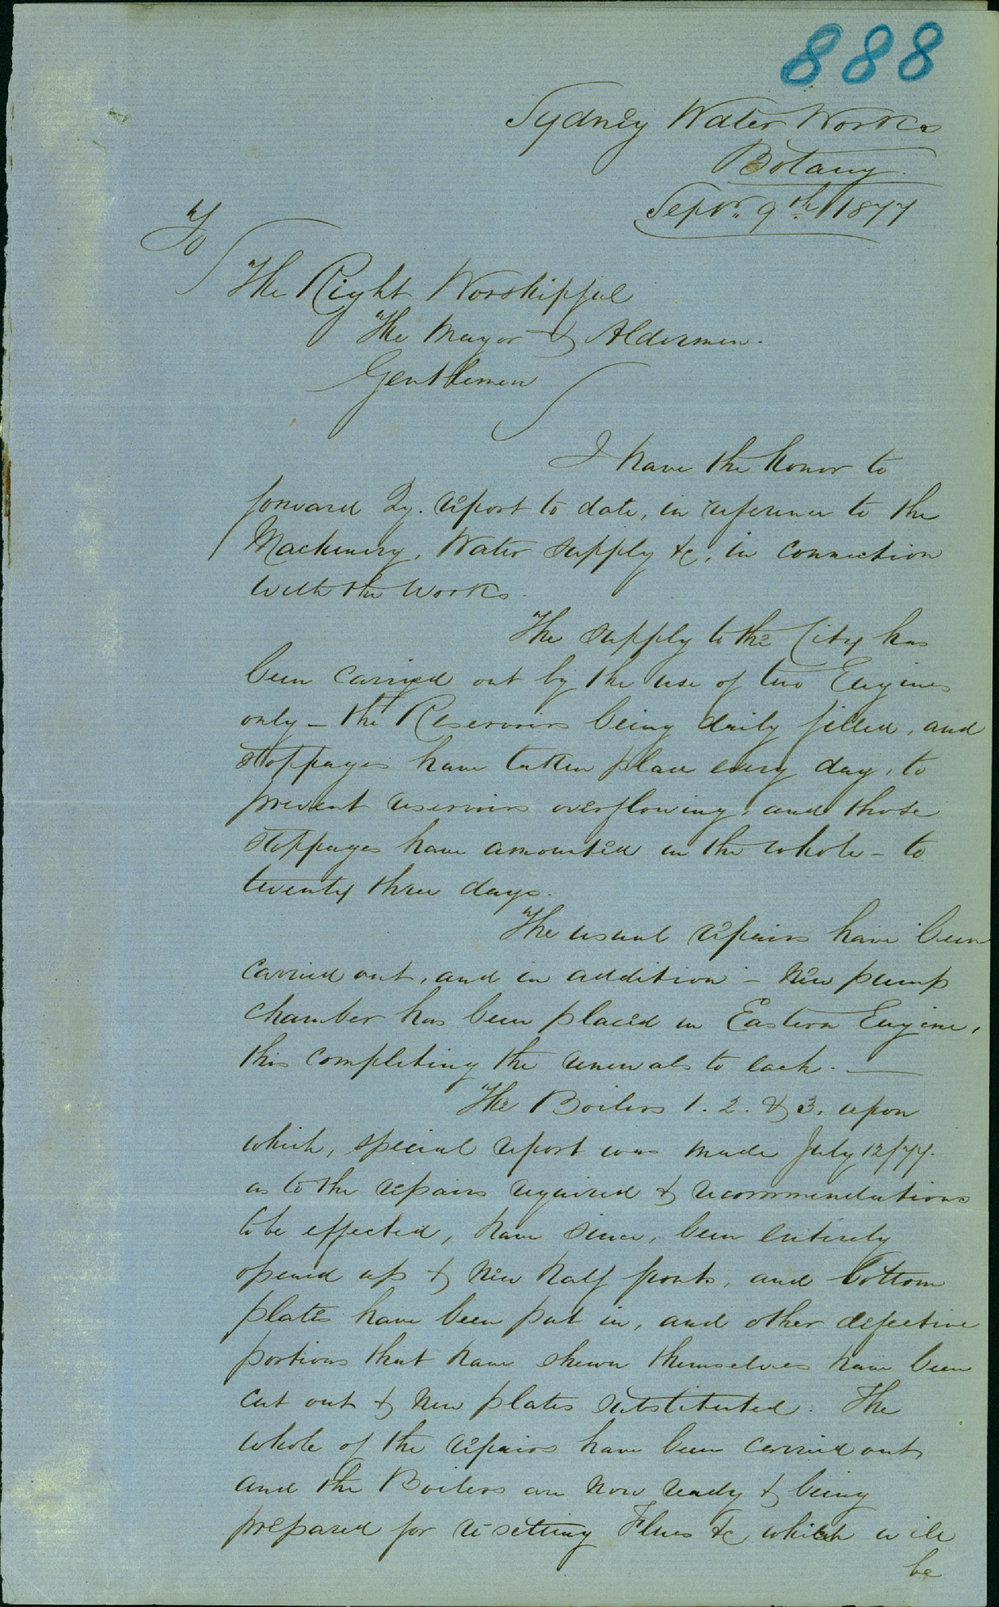 888
Sydney Water Works
Botany.
Septr. 9th 1877
To
The Right Worshipful
The Mayor & Aldermen.
Gentlemen
I have the honor to
forward Qy. report to date, in reference to the
Machinery, Water Supply &c, in connection
with the works.
The supply to the City has
been carried out by the use of two Engines
only - the Reservoirs being daily filled, and
stoppages have taken place every day, to
prevent reservoirs overflowing, and those
stoppages have amounted in the whole - to
twenty three days.
The usual repairs have been
carried out, and in addition - New pump
chamber has been placed in Eastern Engine,
this completing the renewals to each.
The Boilers 1. 2. & 3. upon
which, special report was made July 12/77.
as to the repairs required & recommendations
to be effected, have since, been entirely
opened up & New half fronts, and bottom
plates have been put in, and other defective
portions that have shewn themselves have been
cut out & New plates substituted. The
whole of the repairs have been carried out,
and the Boilers are now ready & being
prepared for re-setting Flues &c, which will
be